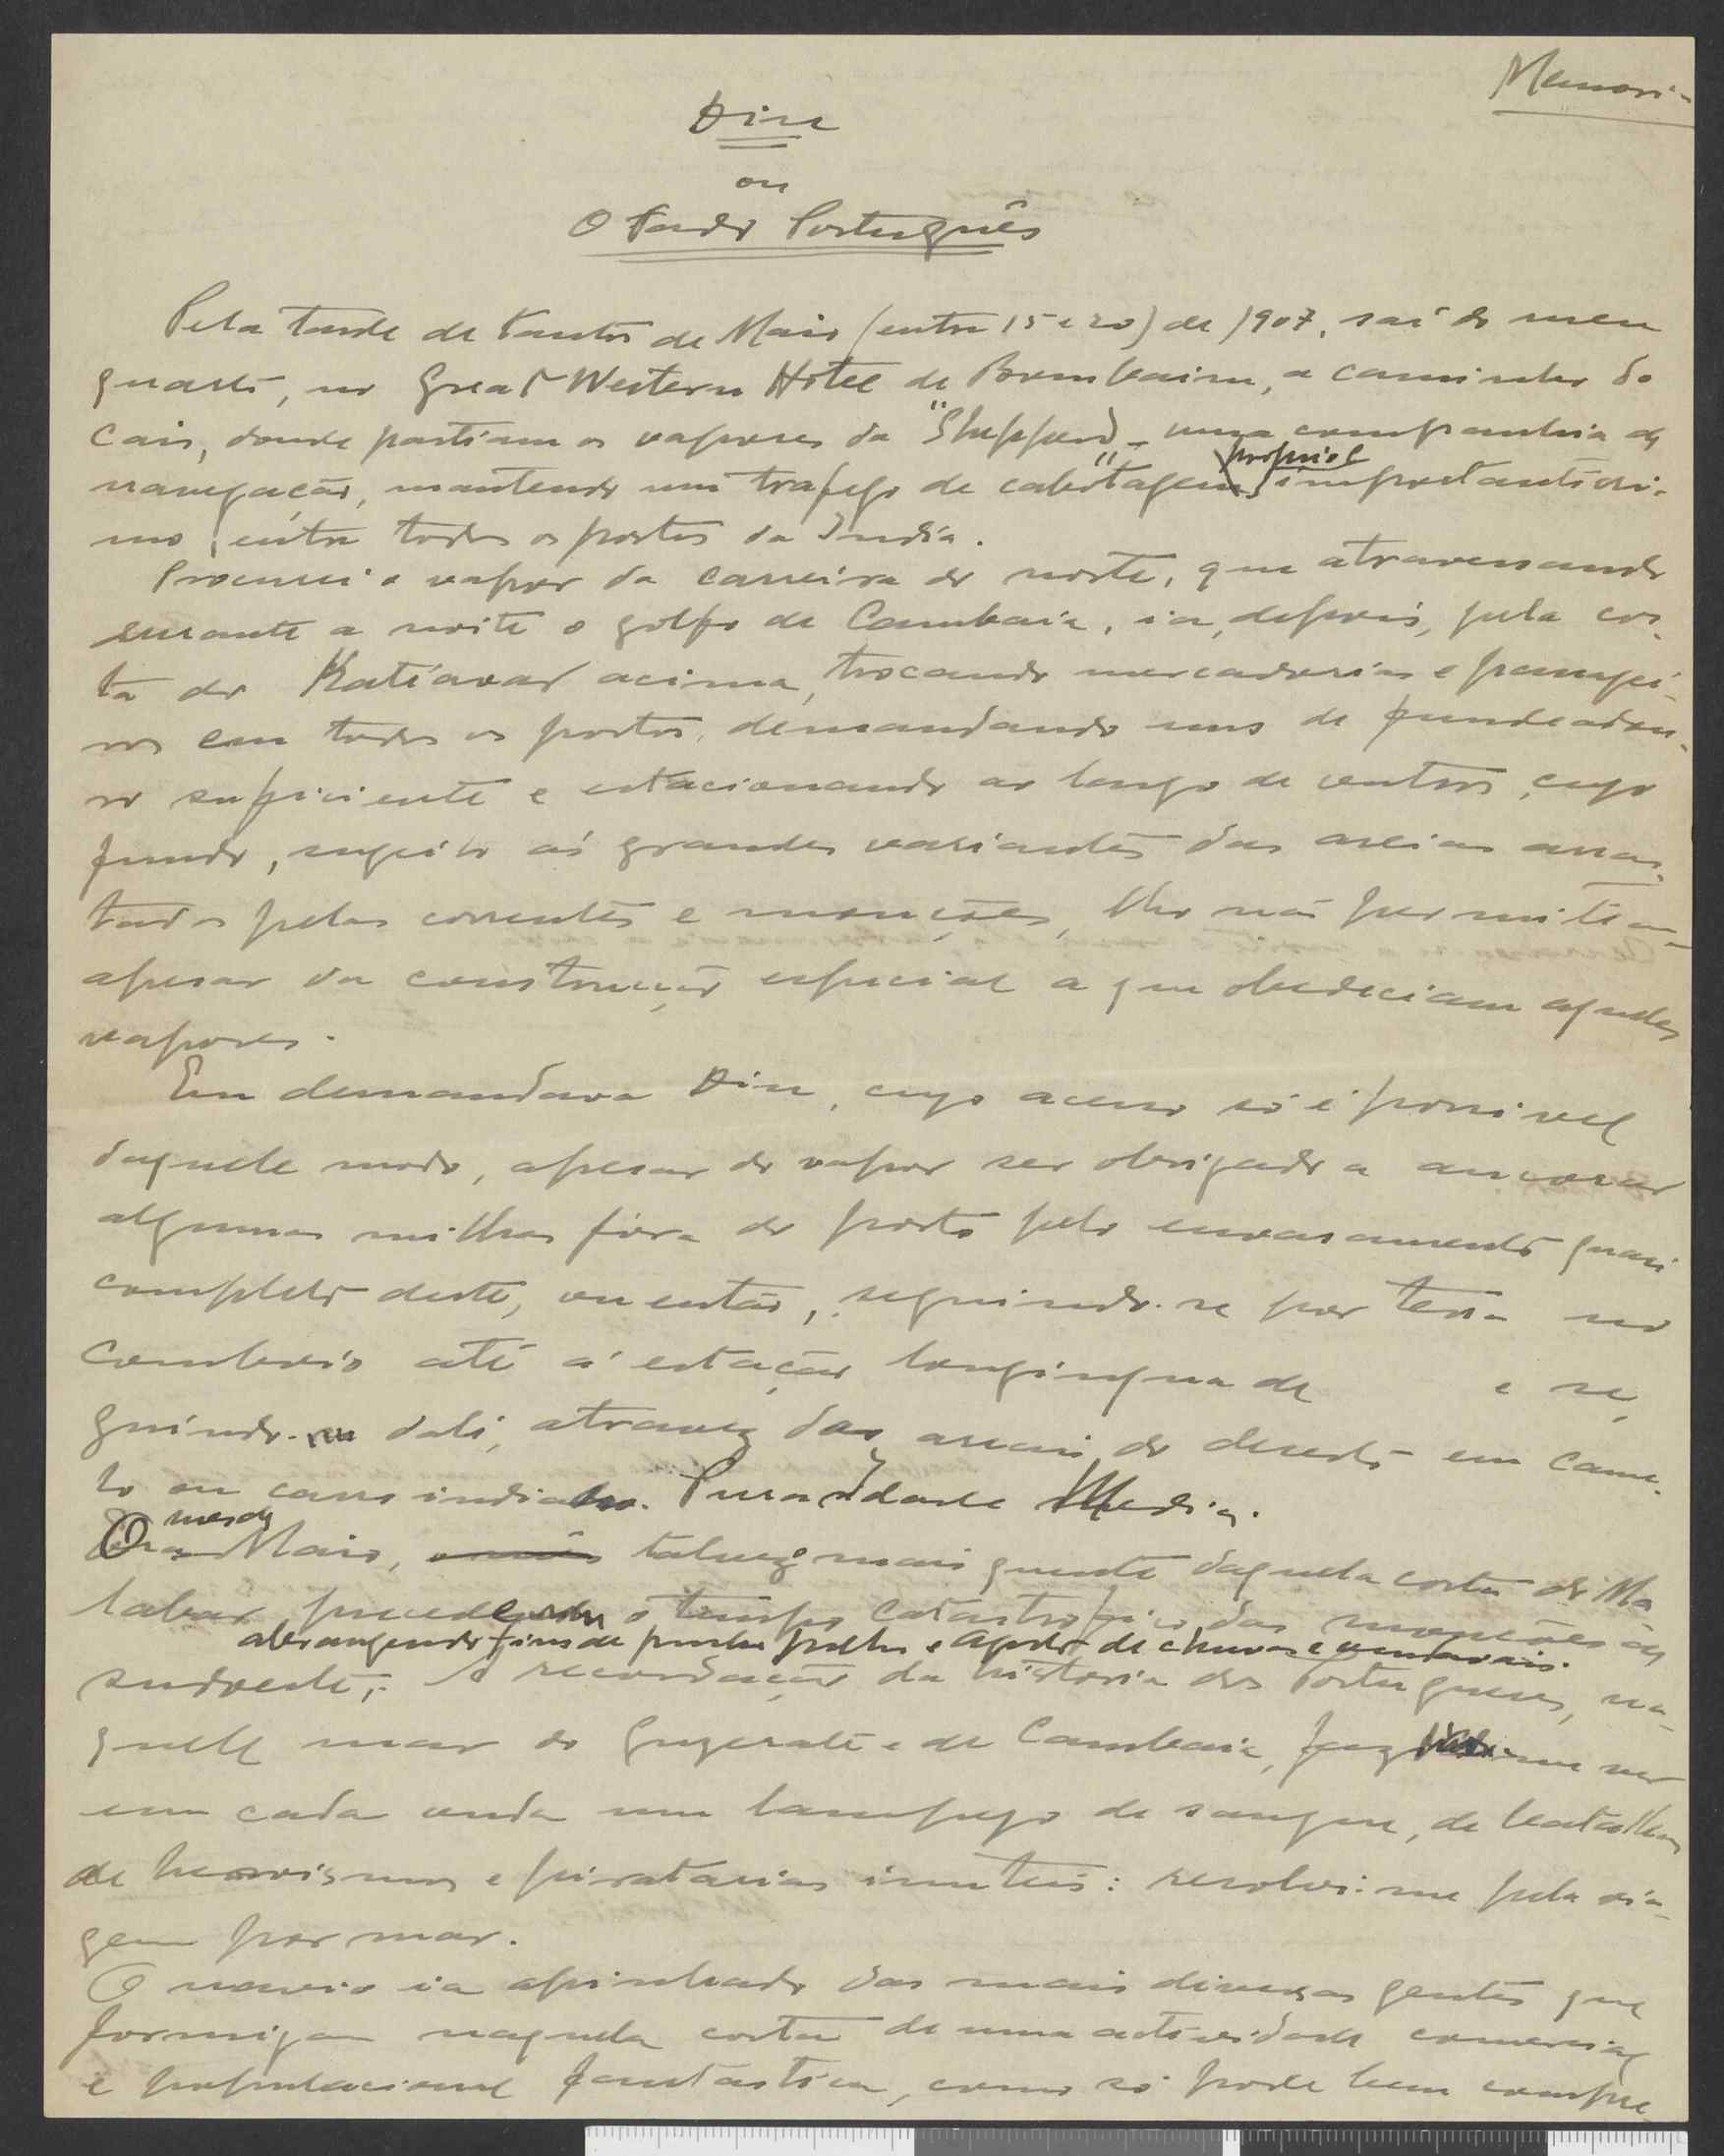 Memori-
Diu
ou
O Fardo Português
Pela tarde de tantos de Maio (entre 15 e 20) de 1907, saí do meu
quarto, no Great Western Hotel de Bombaim, a caminho do
cais, donde partiam os vapores da "Shepperd" - uma companhia de
navegação, mantendo um trafego de cabotagem importantissi-
mo, entre todos os portos da India.
Procurei o vapor da carreira do norte, que atravessando
durante a noite o golfo de Cambaia, ia, depois, pela cos-
ta do Katiavar acima, trocando mercadorias e passagei-
ros em todos os portos, demandando uns de fundeadou-
ro suficiente e estacionando ao largo de outros, cujo
fundo, sugeito ás grandes variantes das areias arras-
tadas pelas correntes e monções, lho não permitiam
apesar da construção especial a que obedeciam aqueles
vapores.
Eu demandava Diu, cujo acesso só é possivel
daquele modo, apesar do vapor ser obrigado a ancorar
algumas milhas fóra do porto pelo envasamento quasi
completo deste, ou então, seguindo-se por terra no
comboio até á estação longinqua de e se-
guindo-se dali, atravez dos areais do deserto em came-
lo ou carro indiano. Pura Idade Media.
O mes de Maio, talvez o mais quente daquela costa do Ma
labar, precedendo o tempo catastrofico das monções do
abrangendo fins de junho julho e Agosto de chuvas e vendavais.
sudoeste; A recordação da historia dos Portugueses, na-
quele mar do Guzerate e de Cambaia, faz me ver
em cada onda um lampejo de sangue, de batalhas
de heroismos e piratarias inuteis: resolvi-me pela via-
gem por mar.
O navio ia apinhado das mais diversas gentes que
formigam naquela costa de uma actividade comercial
e populacional fantastica, como só pode bem compre-